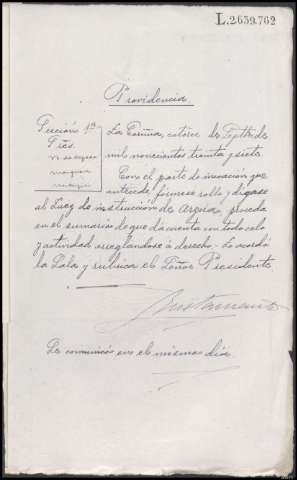 L.2659.762
Providencia
Sección 1ª
Sres.
La Coruña, catorce de Septbre. de
mil novecientos treinta y siete
Con el parte de incoación que
antecede fórmese rollo y dígase
al Juez de instrucción de Arzúa, proceda
en el sumario de que da cuenta con todo celo
y actividad arreglándose a derecho.- Lo acordó
la Sala y rubrica el Señor Presidente
Se comunicó en el mismo día.